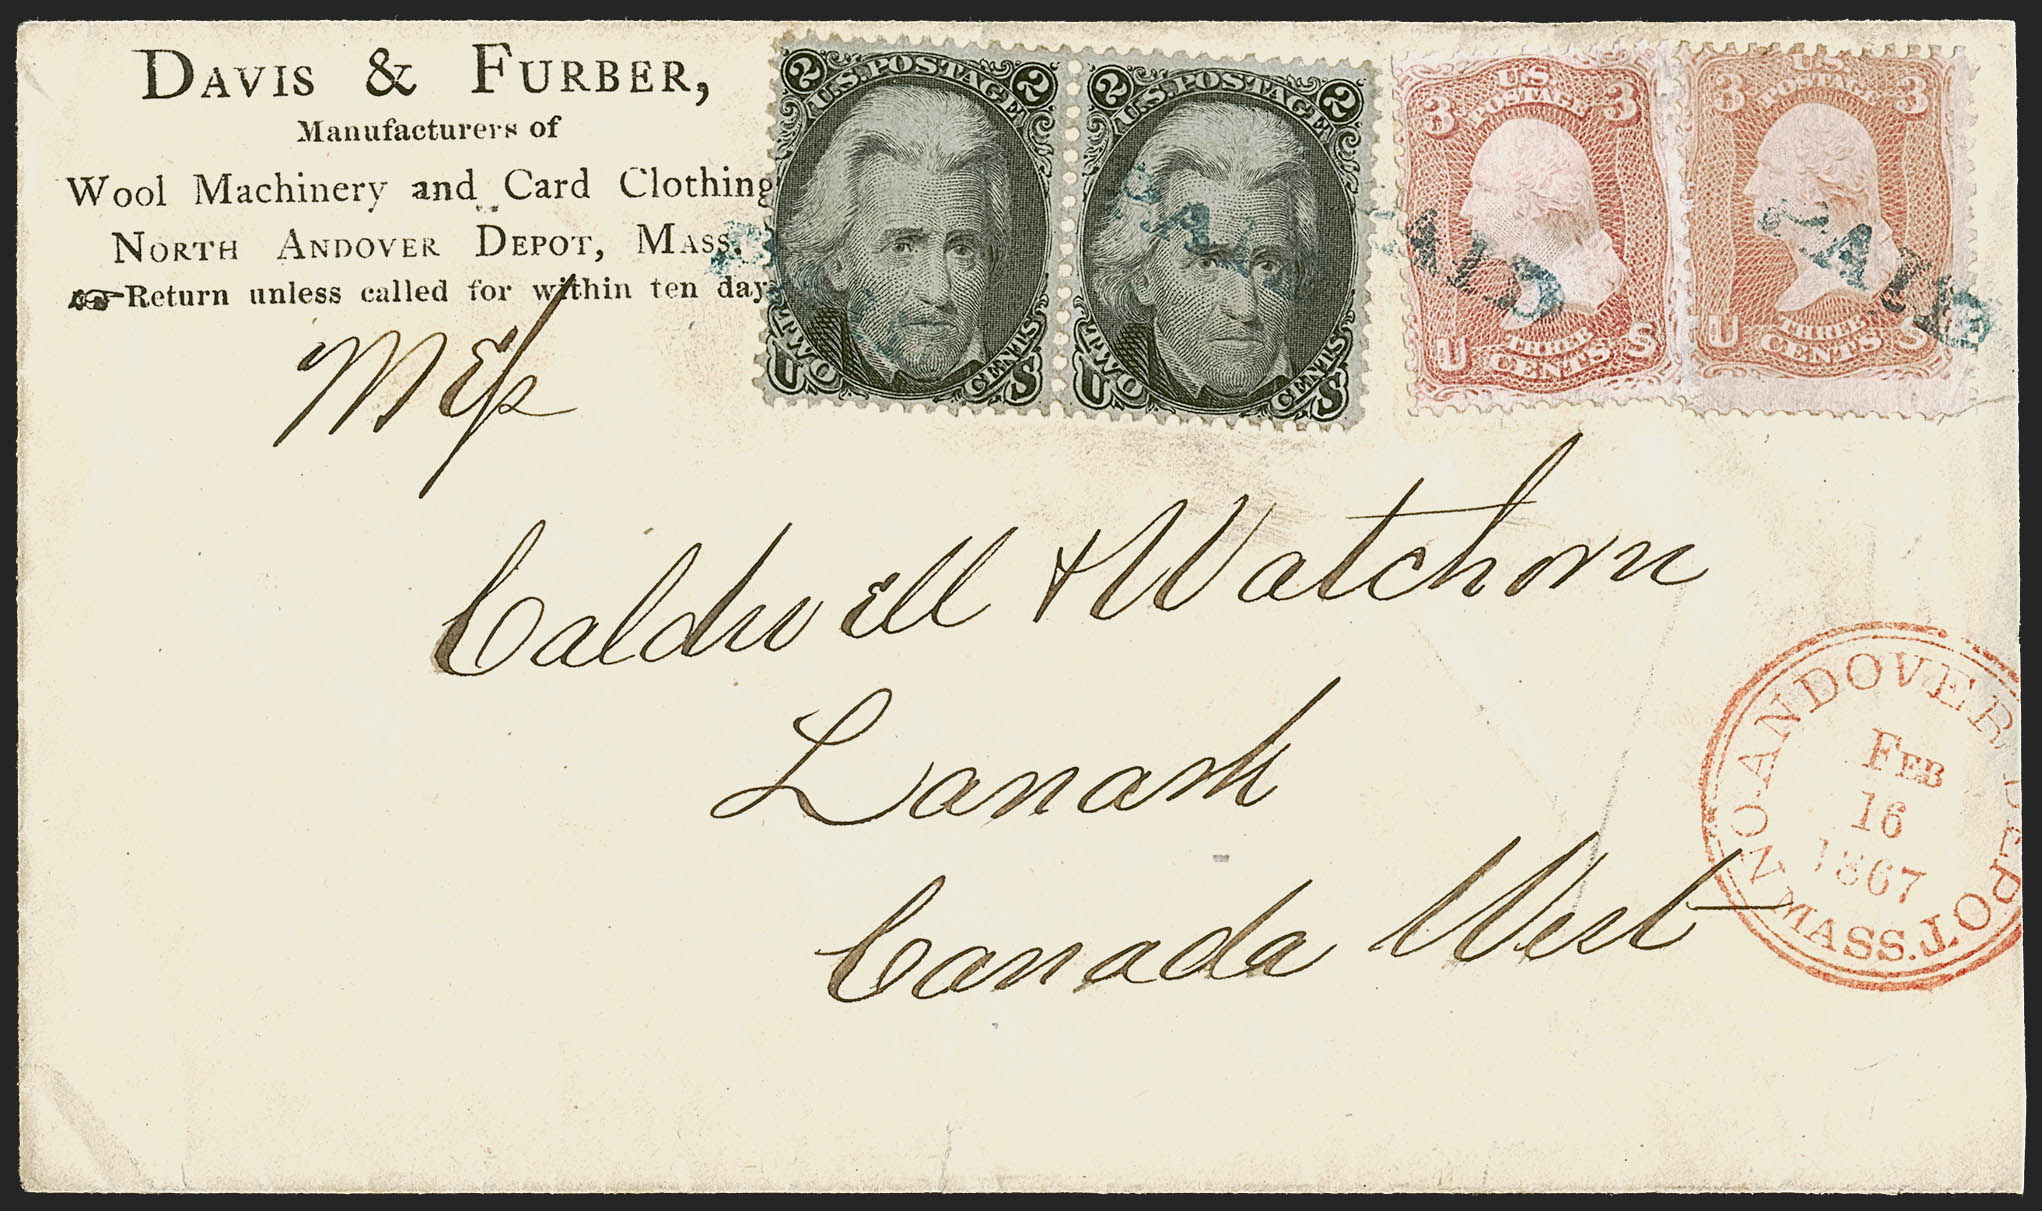 DAVIS & FURBER,
Manufacturers of
Wool Machinery and Card Clothing
NORTH ANDOVER DEPOT, MASS.
Return unless called for within ten day
2 U.S. POSTAGE 2
TWO CENTS
U S
2 U.S. POSTAGE 2
TWO CENTS
U S
3 U.S. POSTAGE 3
THREE CENTS
U S
3 U.S. POSTAGE 3
THREE CENTS
U S
PAID
PAID
PAID
PAID
Caldwill & Watchorn
Lanark
Canada West
NO. ANDOVER DEPOT
FEB
16
1867
MASS.